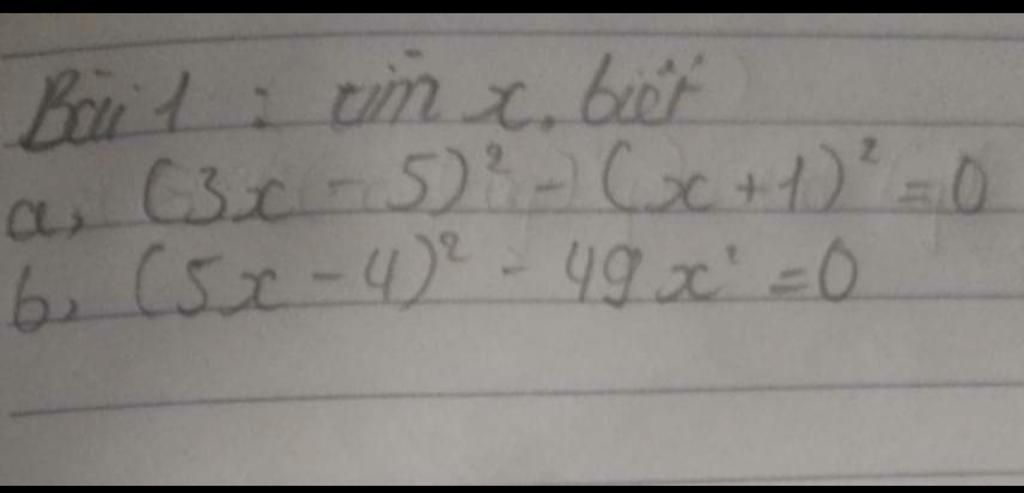 Bài 1 : tìm x. biết
a, (3x - 5)² - (x + 1)² = 0
b, (5x - 4)² - 49x² = 0